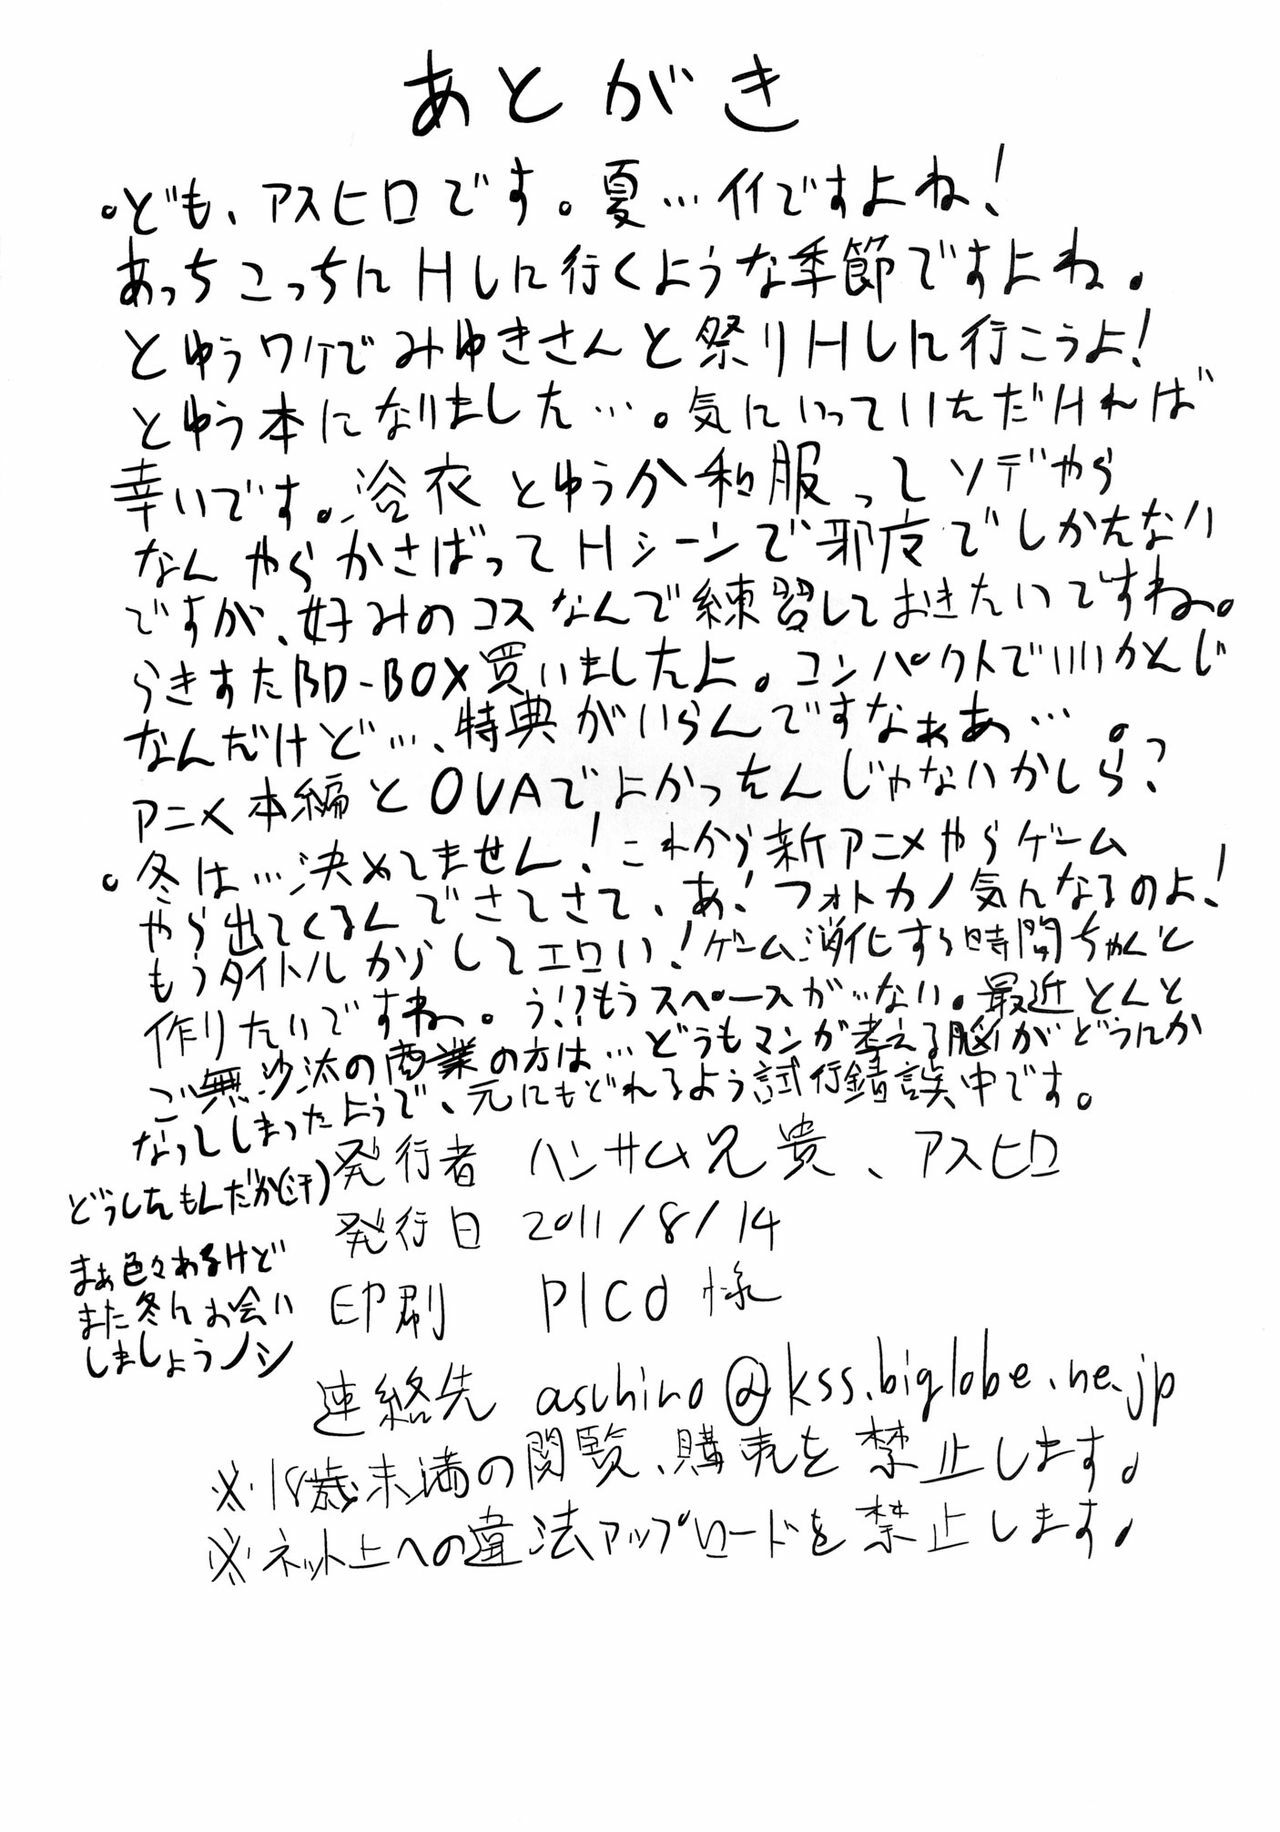 あとがき
。ども、アスヒロです。夏…イイですよね！
あっちこっちにHしに行くような季節ですよね。
とゆうワケでみゆきさんと祭りHしに行こうよ！
とゆう本になりました…。気にいっていただければ
幸いです。浴衣とゆうか和服ってソデやら
なんやらかさばってHシーンで邪魔でしかたない
ですが、好みのコスなんで練習しておきたいですね。
らきすたBD-BOX買いましたよ。コンパクトでいいかんじ
なんだけど…、特典がいらんですなぁあ…。
アニメ本編とOVAでよかったんじゃないかしら？
。冬は…決めてません！これから新アニメやらゲーム
やら出てくるんでさてさて、あ！フォトカノ気になるのよ！
もうタイトルからしてエロい！ゲーム消化する時間ちゃんと
作りたいですね。う！？もうスペースがない。最近とんと
ご無沙汰の商業の方は…どうもマンガ考える脳がどうにか
なってしまったようで、元にもどれるよう試行錯誤中です。
どうしたもんだか(汗)
まぁ色々あるけど
また冬にお会い
しましょうノシ
発行者 ハンサム兄貴、アスヒロ
発行日 2011/8/14
印刷 PICO様
連絡先 asuhiro@kss.biglobe.ne.jp
※18歳未満の閲覧、購売を禁止します。
※ネット上への違法アップロードを禁止します。